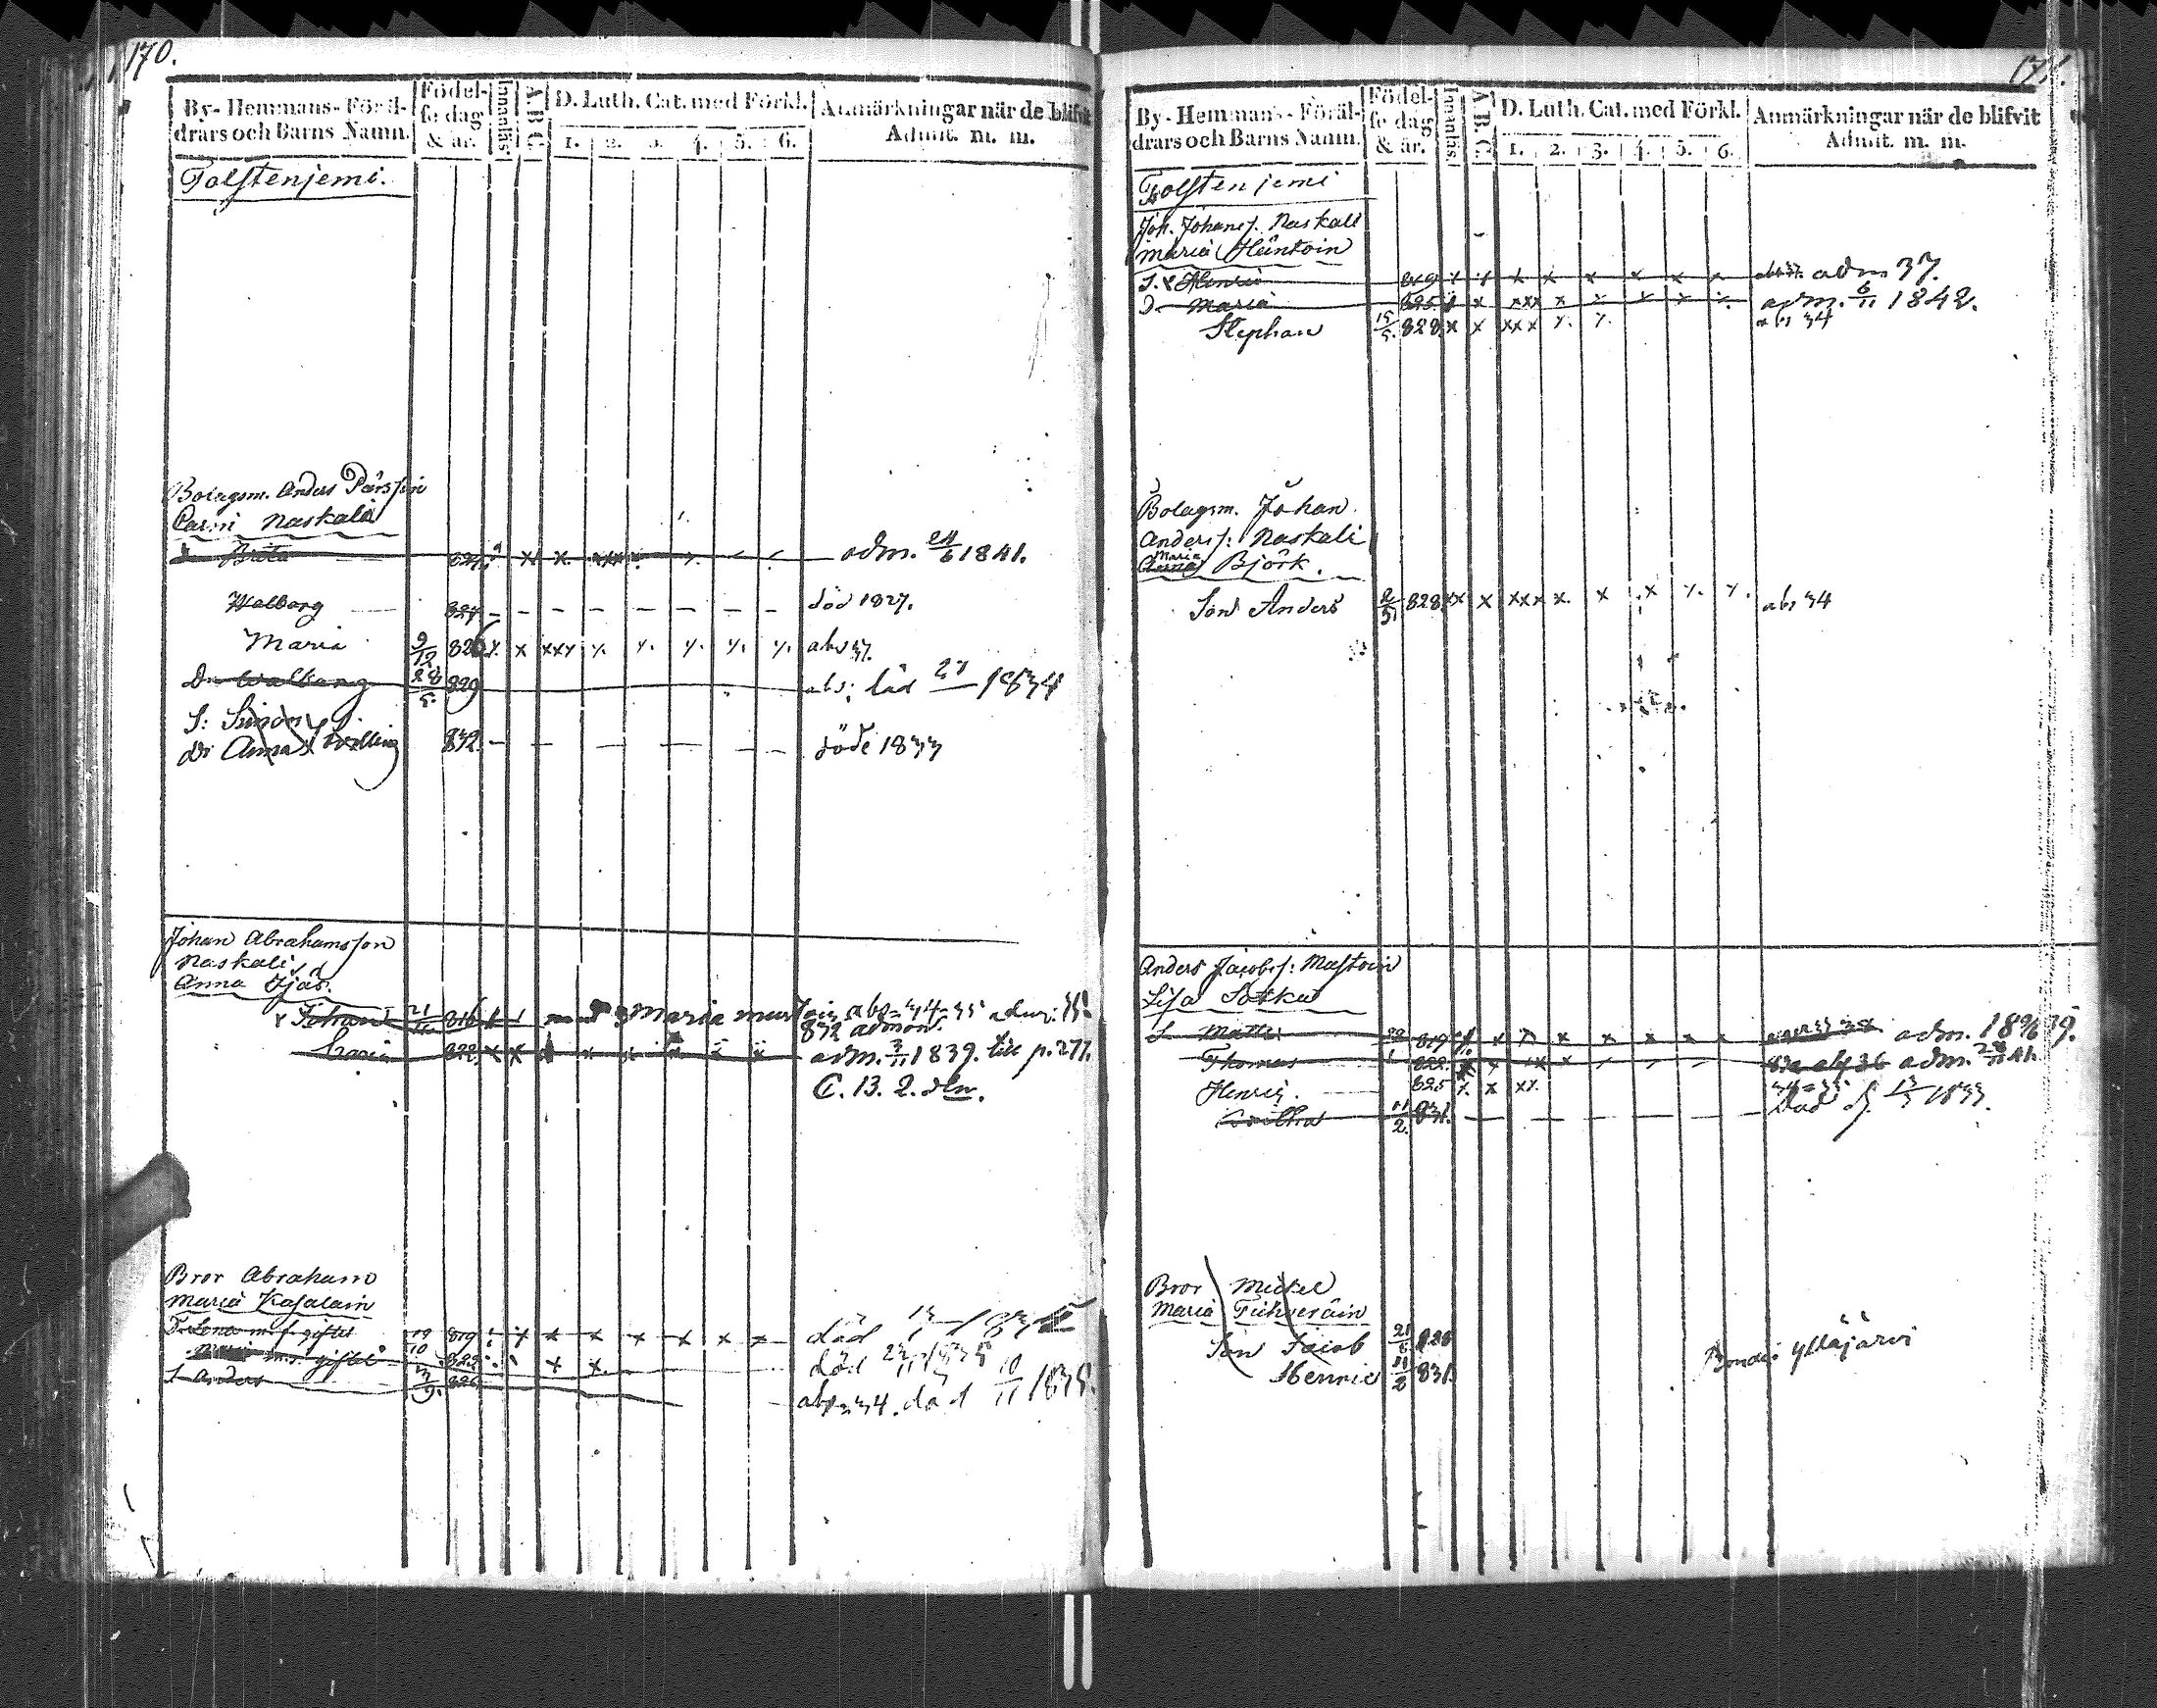 170.
By-Hemmans-Föräl-
drars och Barns Namn.
Födel-
se dag
& år.
Innanläs.
A.B.C.
D. Luth. Cat. med Förkl.
1. 2. 3. 4. 5. 6.
Anmärkningar när de blifvit
Admit. m. m.
Tolstenjemi.
Bolagsm. Anders Pärsson
Carin Naskali
Brita 824 x x xxx adm. 24/6 1841.
Walborg 824 – – – – – – – – död 1827.
Maria 9/12 826 x. x xxx x. x. x. x. x. abs 37.
Dr Walborg 28/5. 829 abs: död 27/ 1834
S: Simon
dr Anna tvilling 832 – – – – – – döde 1833
Johan Abrahamsson
Naskali
Anna
Johan 21/ 816 Maria abs=34=35
832
Caria 822 x x x x x x adm. 3/11 1839. till p. 277.
C. 13. 2. dln.
Bror Abraham
Maria Kasalain
Lena m.f. giftet 19/10 819 x x x x x x x död
m.f. giftet 822 x x död
S Anders 826 abs=34. död 10/11 1835.
171.
By-Hemmans-Föräl-
drars och Barns Namn.
Födel-
se dag
& år.
Innanläs.
A.B.C.
D. Luth. Cat. med Förkl.
1. 2. 3. 4. 5. 6.
Anmärkningar när de blifvit
Admit. m. m.
Tolstenjemi
Joh. Johans. Naskali
Maria Häntoin
S. x Henric 819 x x x x x x x x adm 37.
D Maria 825 x x xxx x x x x x adm. 6/11 1842.
Stephan 15/5. 828 x x xxx x. x. abs 34
Bolagsm. Johan
Anders: Naskali
Maria
Anna Björk.
Son Anders 2/5 828 xx x xxx x. x x x. x. abs 34
Anders Jacobs: Mustoin
Lisa Sotka
S Matts 819 x x x x x x x adm. 18 39.
Thomas 822. x x xx x adm. 41.
Henric. 825 x. x xx. 34=35
11/2. 831. – – – – – död 1833.
Bror Mickel
Maria Tiihveräin
Son Jacob 828
Henric 11/2 831.
Bonde i Ylläjärvi